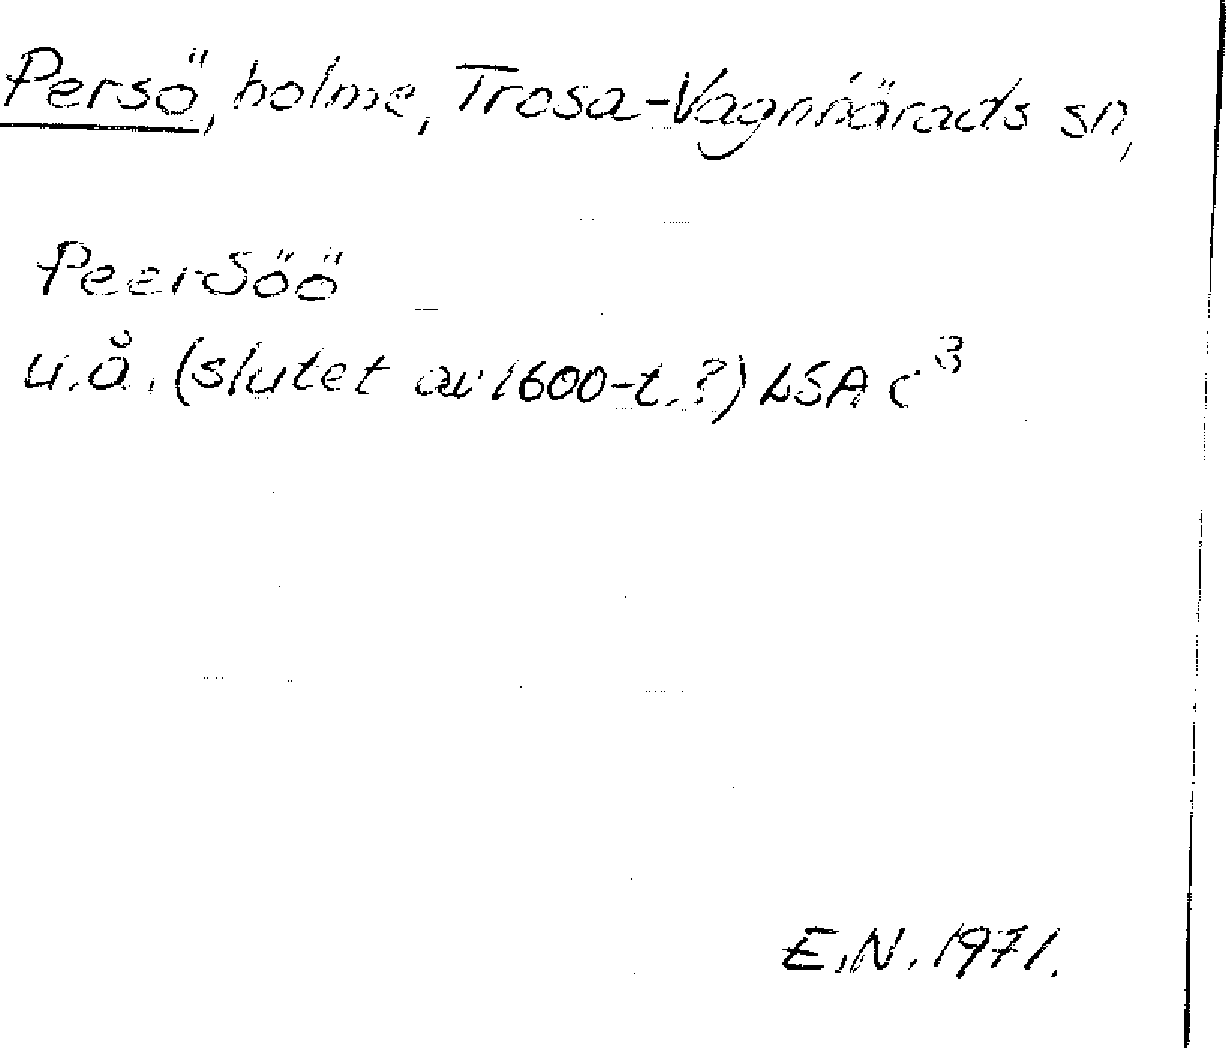 Persö, holme, Trosa-Vagnhärads sn,
PeerSöö
u.å. (slutet av 1600-t.?) LSA C³
E.N. 1971.